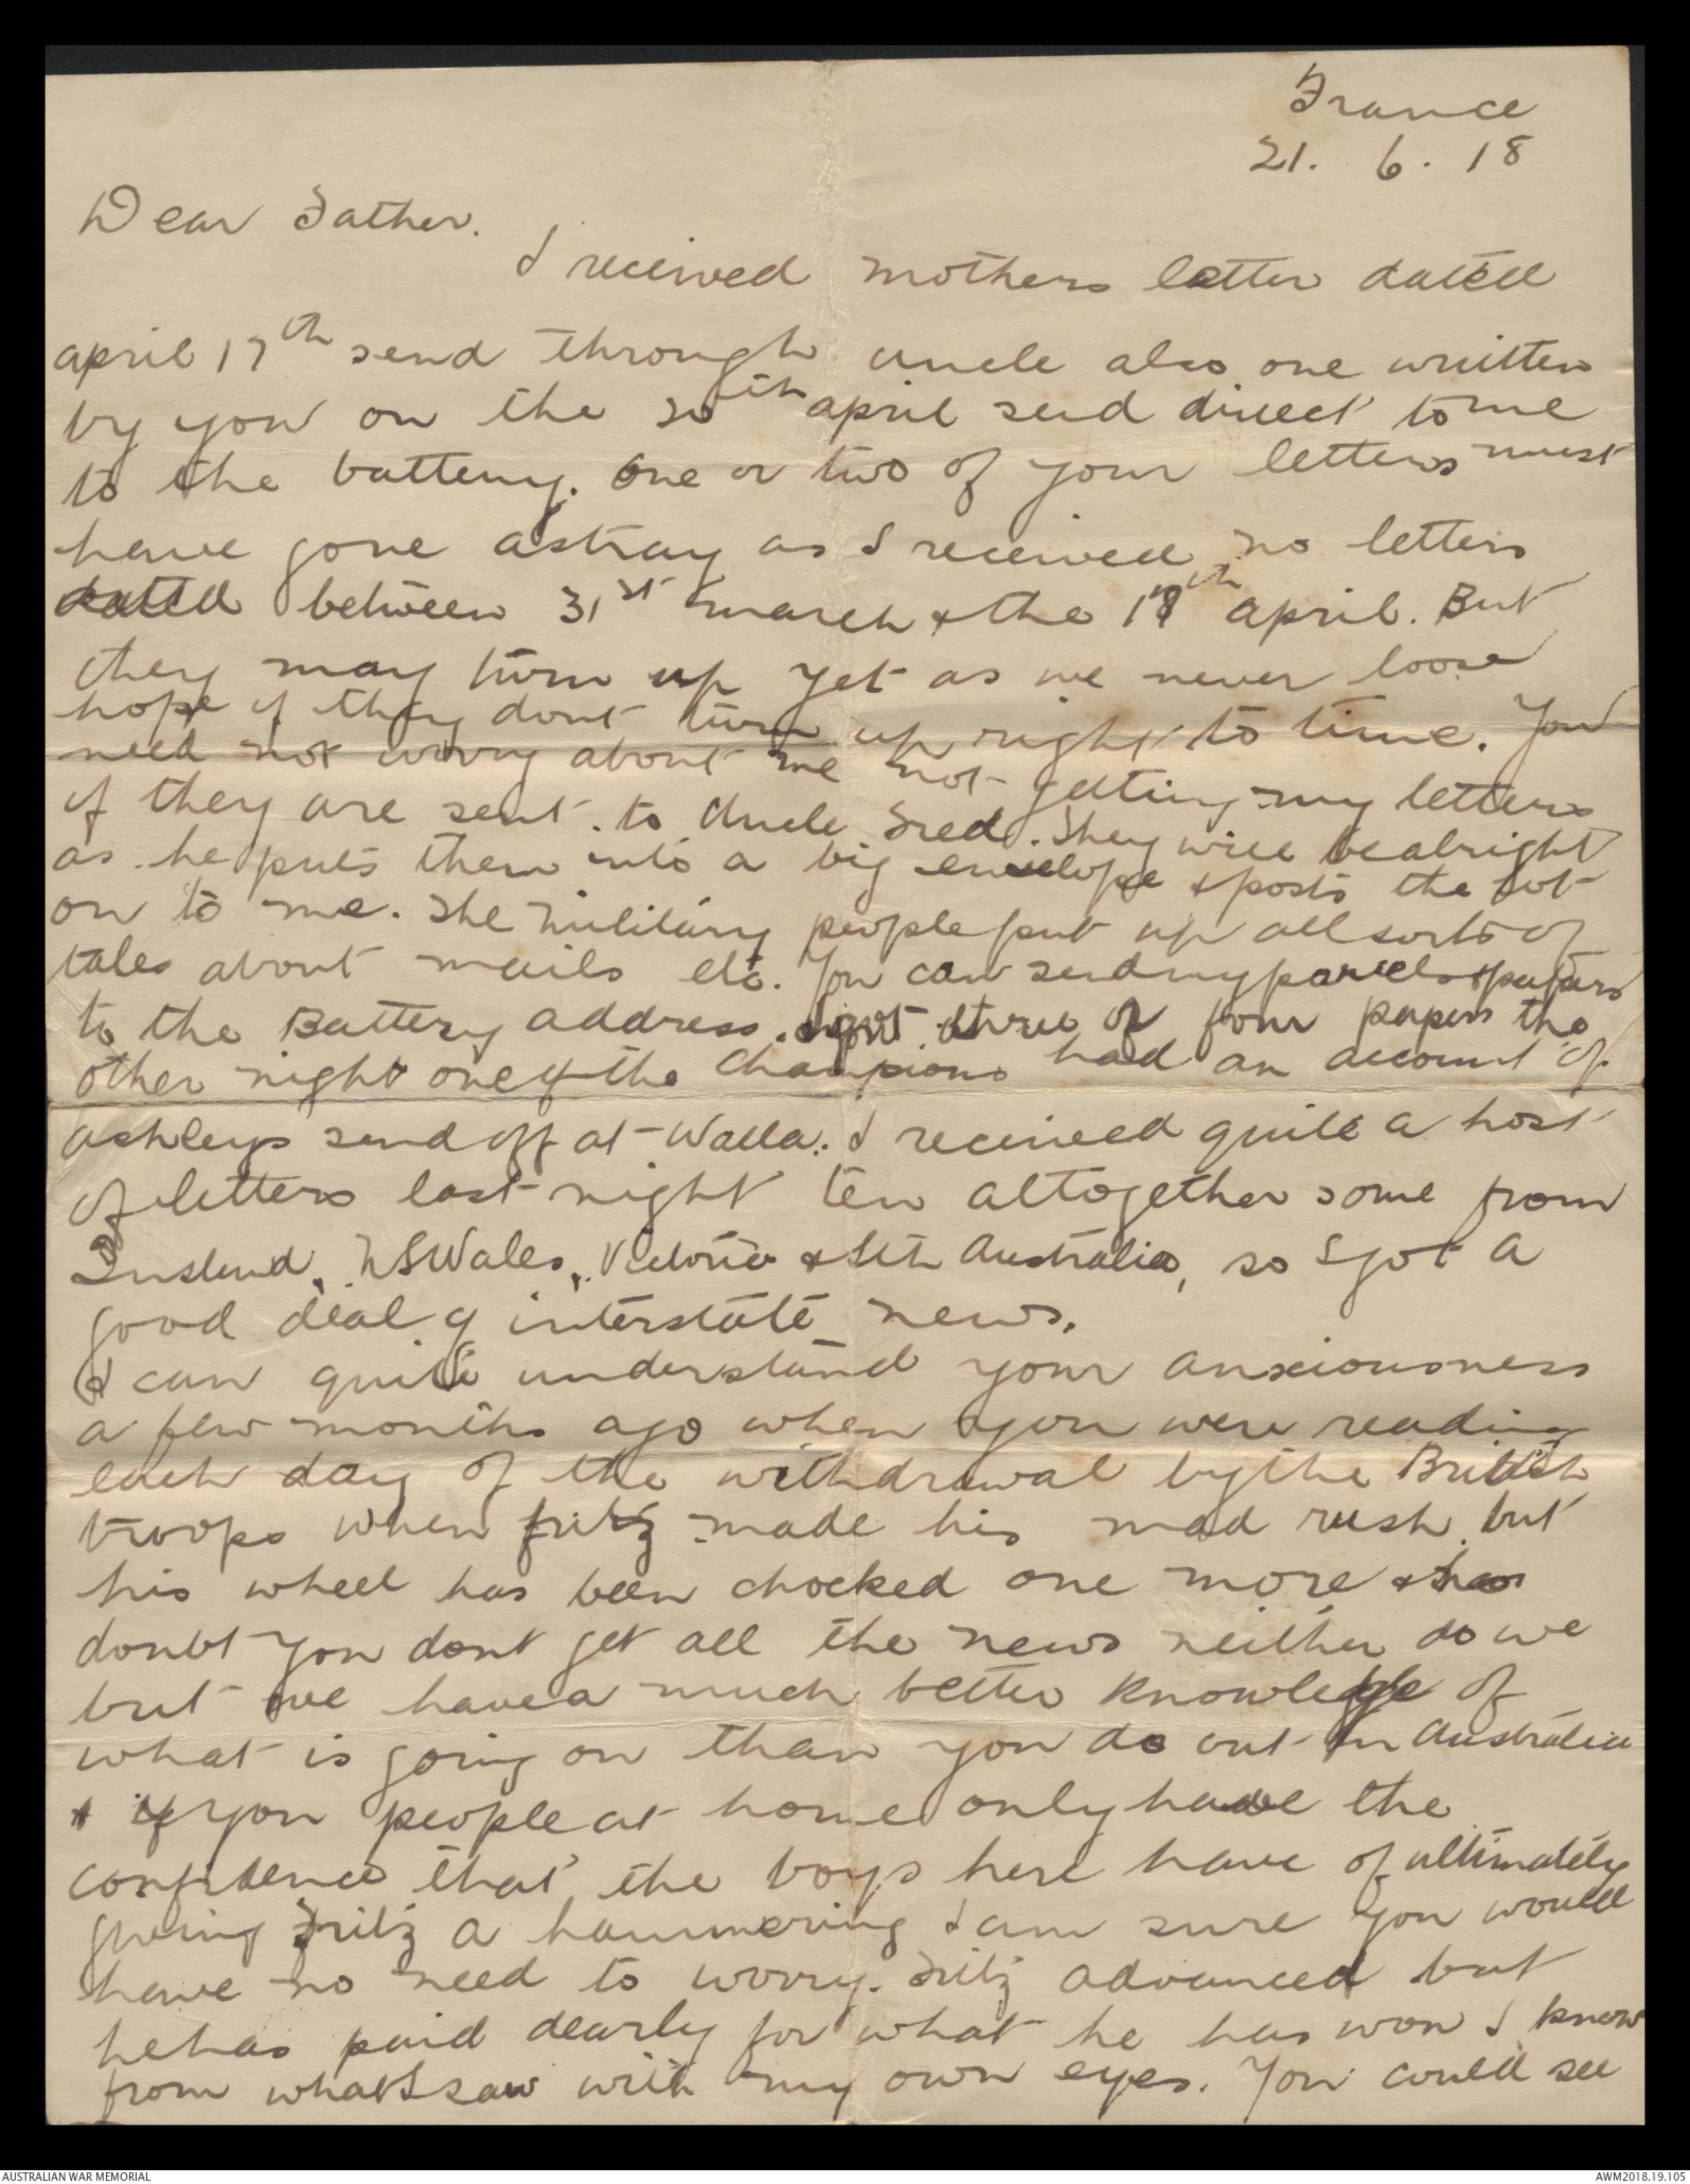 France
21. 6. 18
Dear Father.
I received mothers letter dated
april 17th send through uncle also one written
by you on the 20th april send direct to me
to the battery. One or two of your letters must
have gone astray as I received no letters
dated between 31st march & the 17th april. But
they may turn up yet as we never loose
hope if they dont turn up right to time. You
need not worry about me not getting my letters
if they are sent to Uncle Fred. They will be alright
as he puts them into a big envelope & posts the lot
on to me. The military people put up all sorts of
tales about mails etc. You can send my parcels & papers
to the Battery address. I got three or four papers the
other night one of the Champions had an account of
Ashleys send off at Walla. I received quite a host
of letters last night ten altogether some from
Qnsland, NSWales, Victoria & Sth Australia, so I got a
good deal of interstate news.
I can quite understand your anxiousness
a few months ago when you were reading
each day of the withdrawal by the British
troops when fritz made his mad rush but
his wheel has been chocked one more &
doubt you dont get all the news neither do we
but we have a much better knowledge of
what is going on than you do out in Australia
& if you people at home only have the
confidence that the boys here have of ultimately
giving Fritz a hammering I am sure you would
have no need to worry. Fritz advanced but
he has paid dearly for what he has won I know
from what I saw with my own eyes. You could see
AUSTRALIAN WAR MEMORIAL
AWM2018.19.105